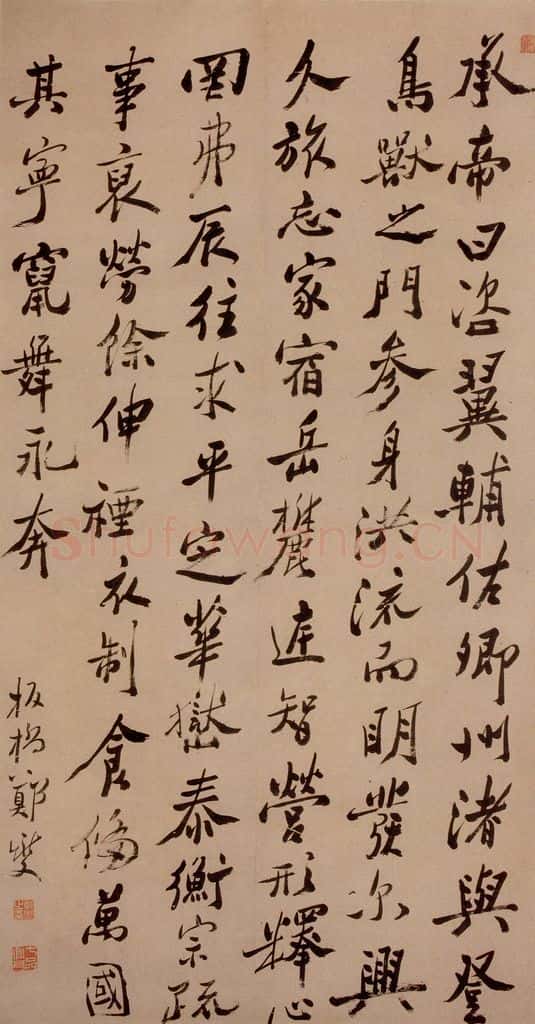 承帝曰咨翼輔佑卿州渚與登
鳥獸之門参身洪流而明發尔興
久旅忘家宿岳麓庭智營形釋心
罔弗辰往求平定華嶽泰衡宗疏
事裒勞餘伸禋衣制食備萬國
其寧竄舞永奔
板橋鄭燮
Shufawang.CN